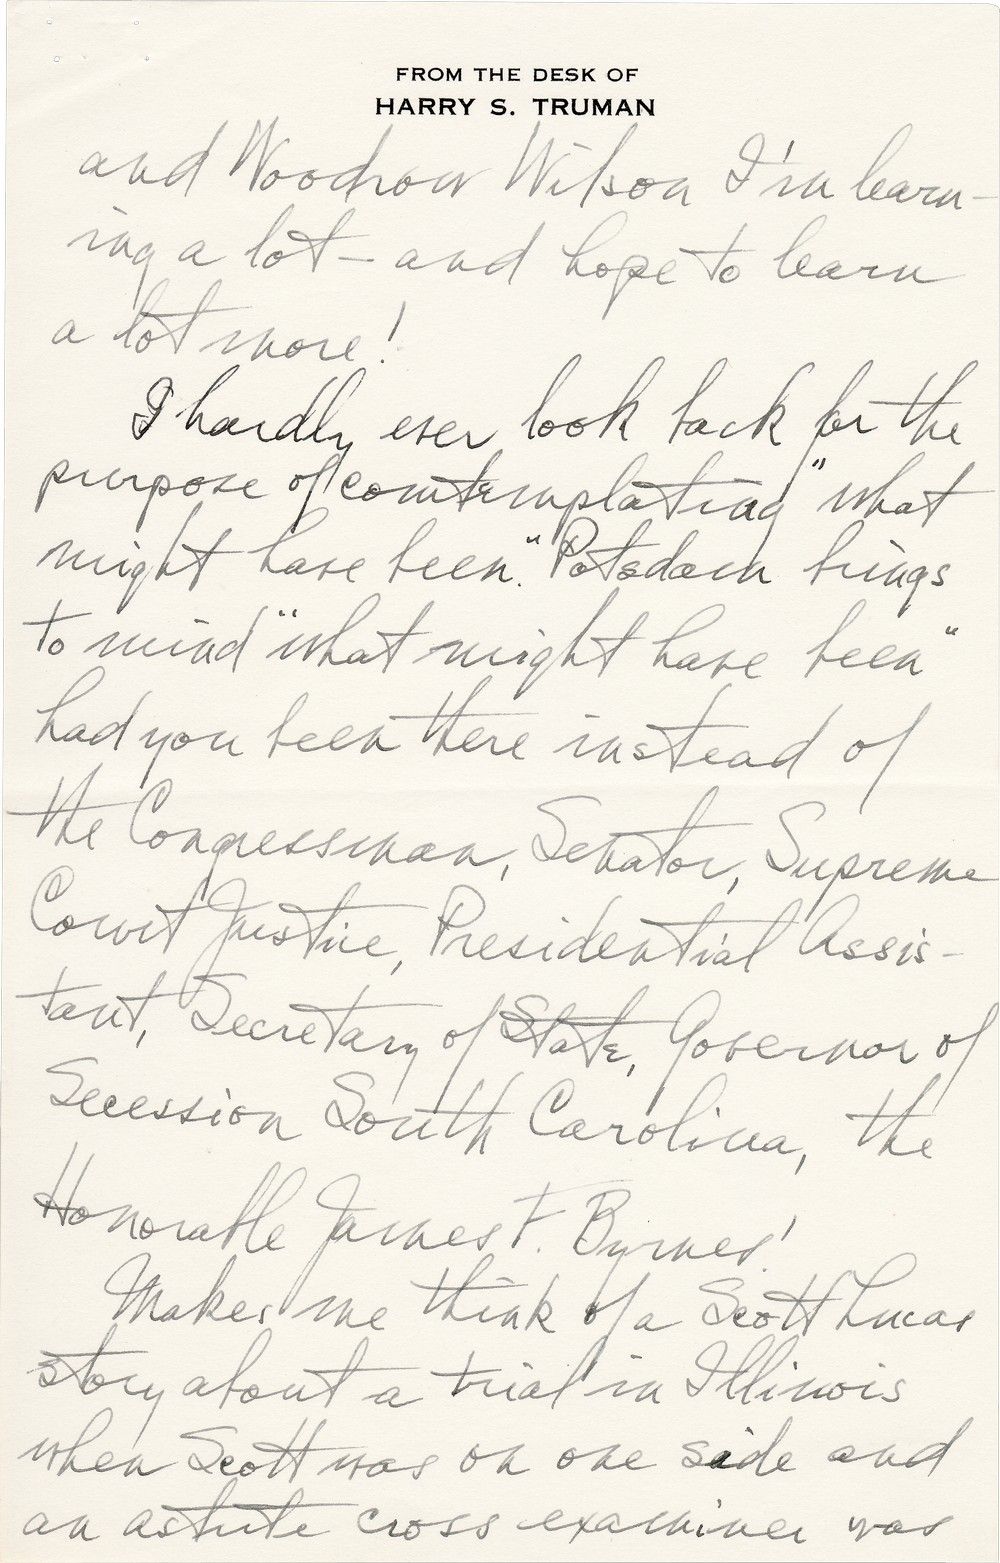 FROM THE DESK OF
HARRY S. TRUMAN
and Woodrow Wilson I'm learn-
ing a lot - and hope to learn
a lot more!
I hardly ever look back for the
purpose of comtemplating "what
might have been." Potsdam brings
to mind "what might have been"
had you been there instead of
the Congressman, Senator, Supreme
Court Justice, Presidential Assis-
tant, Secretary of State, Governor of
Secession South Carolina, the
Honorable James F. Byrnes!
Makes me think of a Scott Lucas
story about a trial in Illinois
when Scott was on one side and
an astute cross examiner was